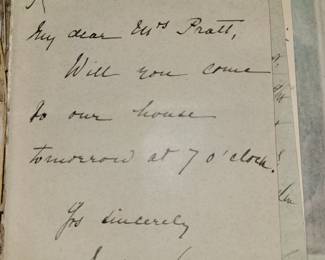 My dear Mrs Pratt,
Will you come
to our house
tomorrow at 7 o'clock.
Yrs sincerely